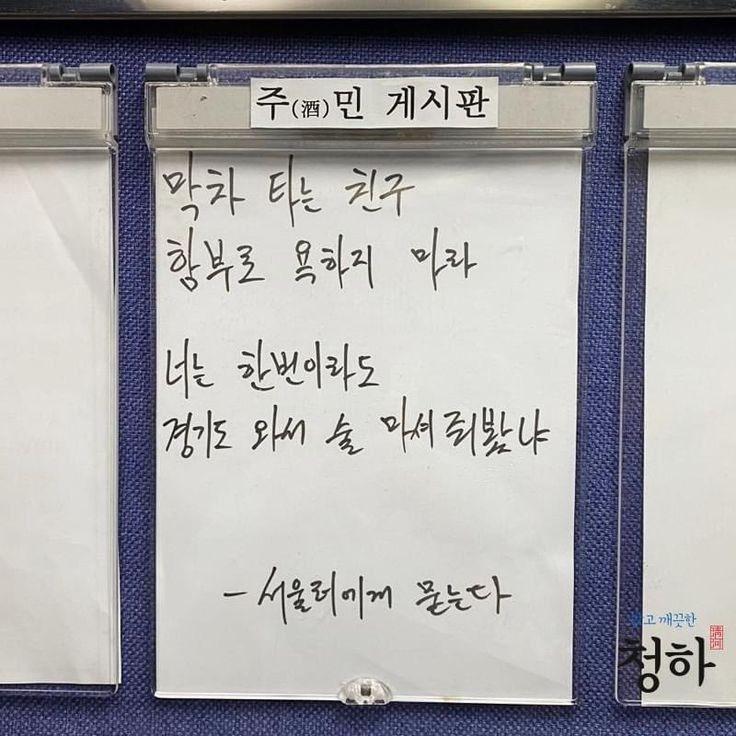 주(酒)민 게시판
막차 타는 친구
함부로 욕하지 마라
너는 한번이라도
경기도 와서 술 마셔줘봤냐
- 서울러에게 묻는다
맑고 깨끗한
청하
清河